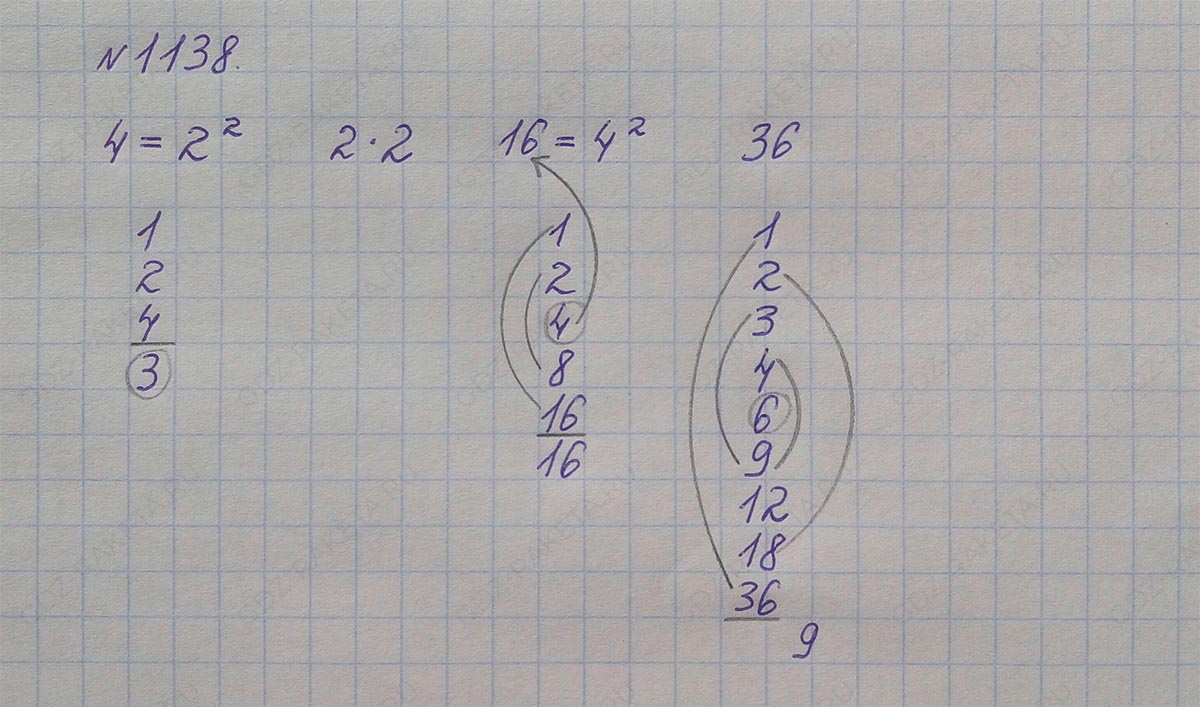 №1138.
4 = 2² 2·2 16 = 4² 36
1 1 1
2 2 2
4 4 3
3 8 4
16 6
16 9
12
18
36
9